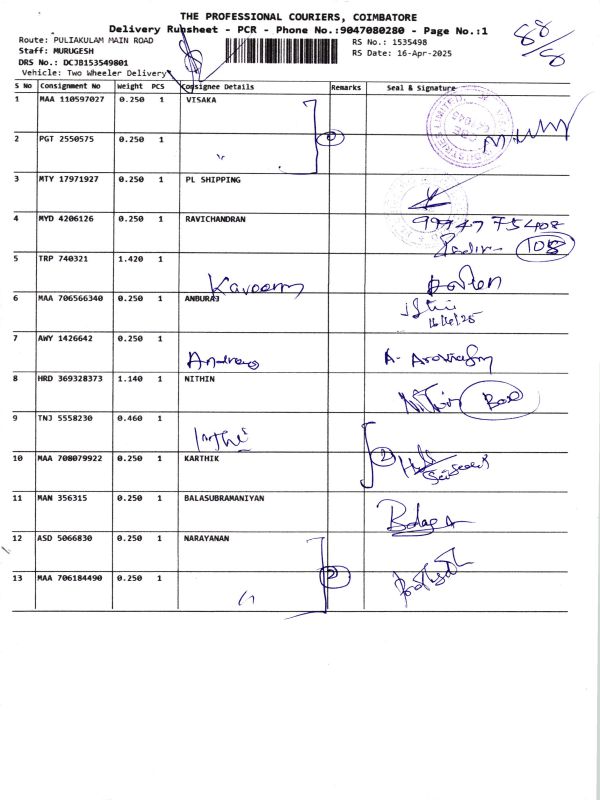 THE PROFESSIONAL COURIERS, COIMBATORE
Delivery Runsheet - PCR - Phone No.:9047080280 - Page No.:1
Route: PULIAKULAM MAIN ROAD
RS No.: 1535498
Staff: MURUGESH
RS Date: 16-Apr-2025
DRS No.: DCJB153549801
Vehicle: Two Wheeler Delivery
88/98
S No Consignment No Weight PCS Consignee Details Remarks Seal & Signature
1 MAA 110597027 0.250 1 VISAKA
2 PGT 2550575 0.250 1
3 MTY 17971927 0.250 1 PL SHIPPING
4 MYD 4206126 0.250 1 RAVICHANDRAN
108
5 TRP 740321 1.420 1
6 MAA 706566340 0.250 1 ANBURAJ
16/4/25
7 AWY 1426642 0.250 1
8 HRD 369328373 1.140 1 NITHIN
Nithin
9 TNJ 5558230 0.460 1
10 MAA 708079922 0.250 1 KARTHIK 2
11 MAN 356315 0.250 1 BALASUBRAMANIYAN
12 ASD 5066830 0.250 1 NARAYANAN
13 MAA 706184490 0.250 1 2